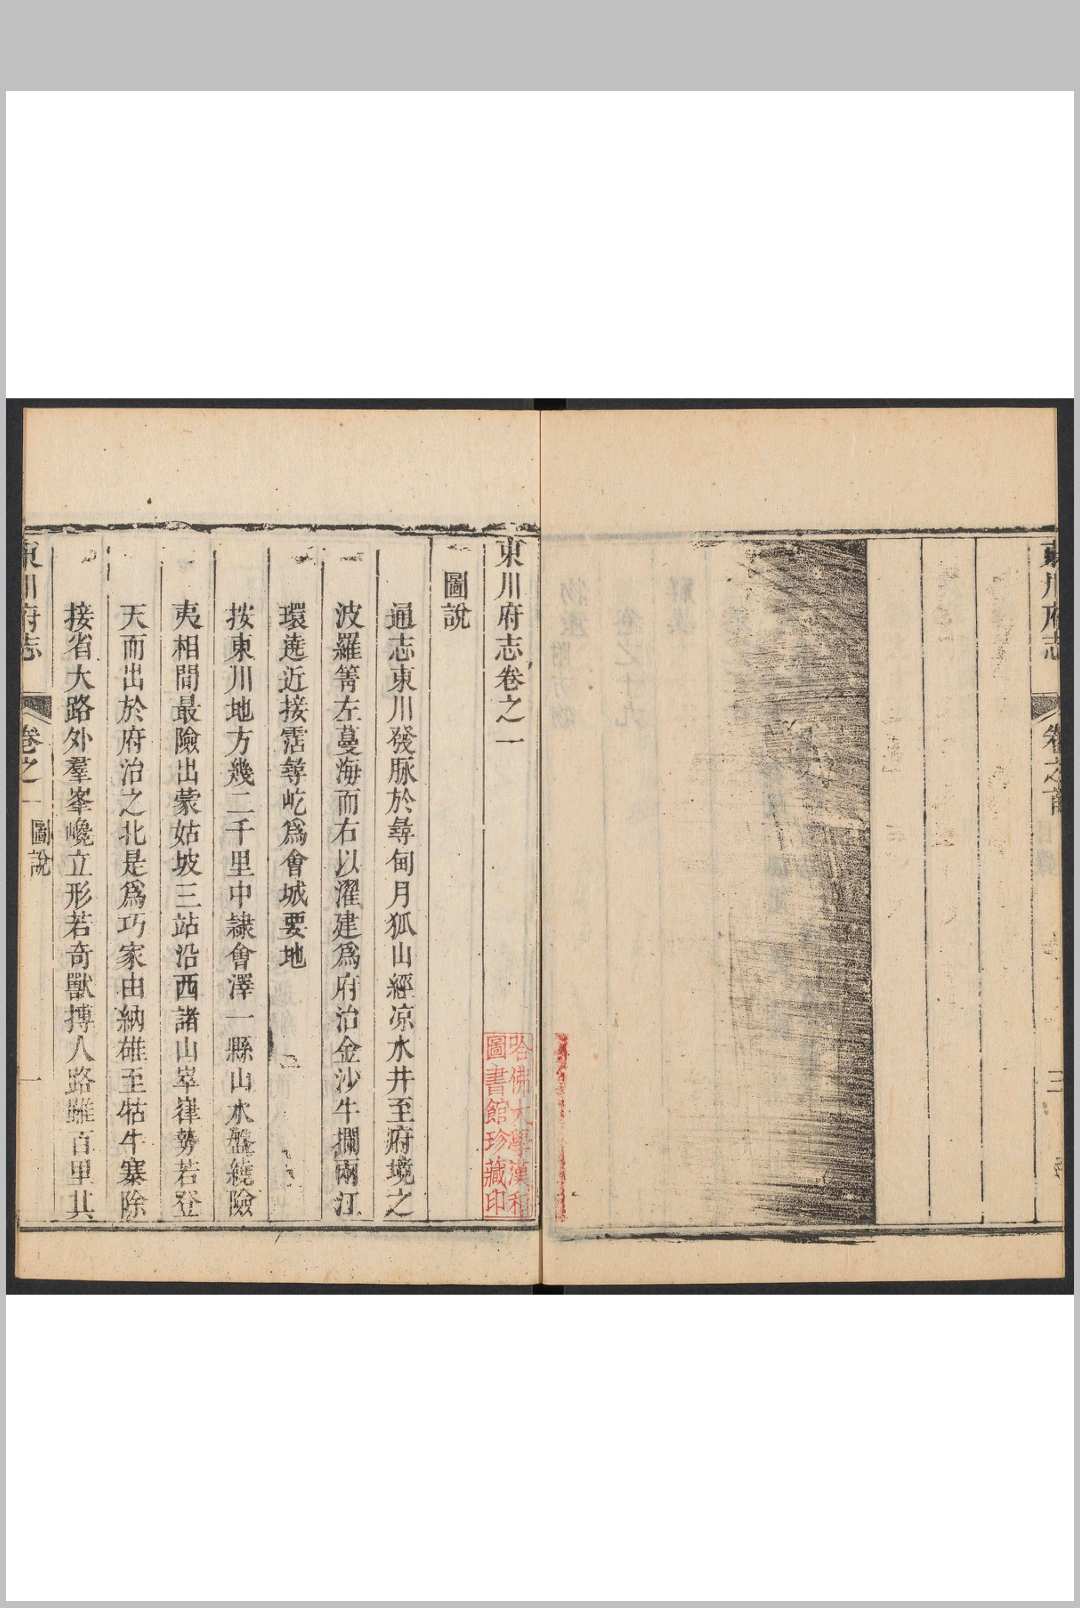 東川府志
卷之首
三
東川府志卷之一
圖說
通志東川發脉於尋甸月狐山經凉水井至府境之
波羅箐左蔓海而右以濯建爲府治金沙牛攔兩江
環遶近接霑尋屹爲會城要地
按東川地方幾二千里中隷會澤一縣山水盤繞險
夷相間最險出蒙姑坡三站沿西諸山崒嵂勢若登
天而出於府治之北是爲巧家由納雄至牯牛寨除
接省大路外羣峯巉立形若奇獸搏人路雖百里其
東川府志
卷之一
圖說
一
哈佛大學漢和
圖書館珍藏印